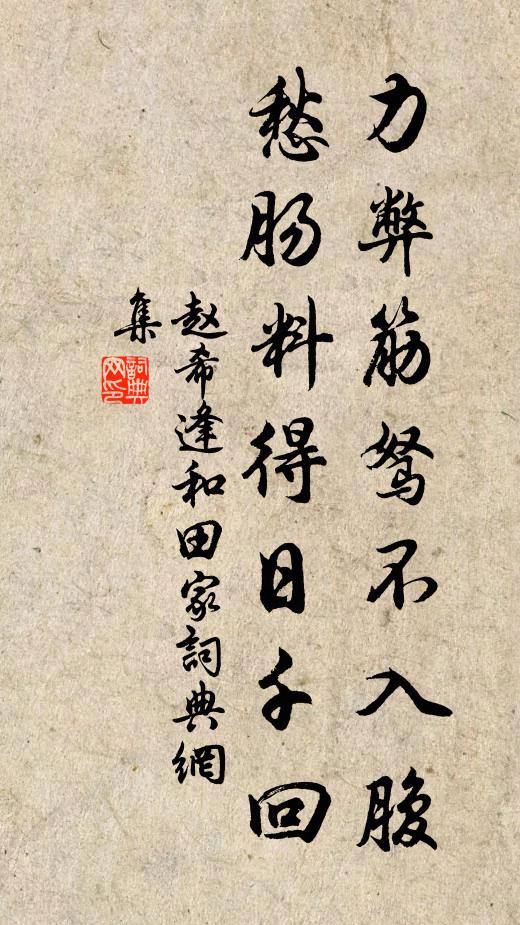 力弊筋驽不入腹
愁肠料得日千回
赵希逢和田家詞典網
集
詞典
网印